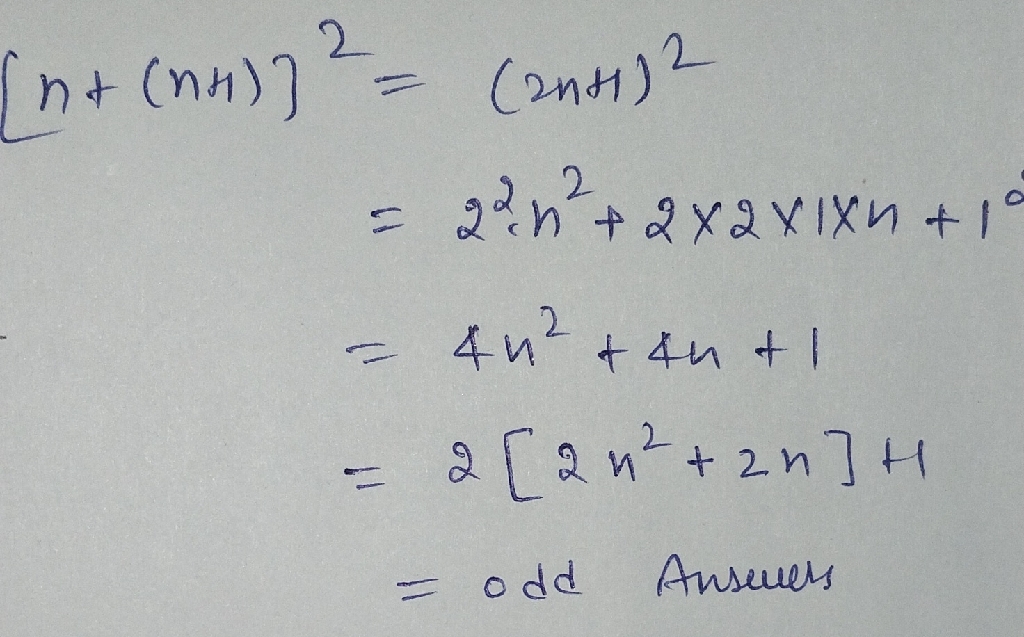 [n+(n+1)]² = (2n+1)²
= 2².n² + 2×2×1×n + 1²
= 4n² + 4n + 1
= 2[2n² + 2n] + 1
= odd Answers